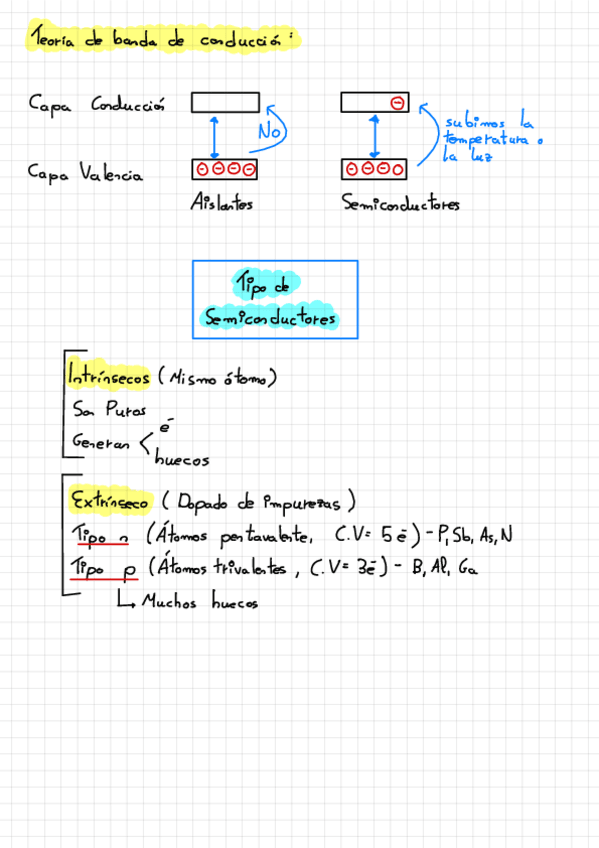 Teoría de banda de conducción:
Capa Conducción
No
subimos la
temperatura o
la luz
Capa Valencia
Aislantes
Semiconductores
Tipo de
Semiconductores
Intrínsecos (Mismo átomo)
Son Puros
Generan < é
huecos
Extrínseco (Dopado de impurezas)
Tipo n (Átomos pentavalente, C.V= 5 ē) - P, Sb, As, N
Tipo p (Átomos trivalentes, C.V= 3ē) - B, Al, Ga
↳ Muchos huecos